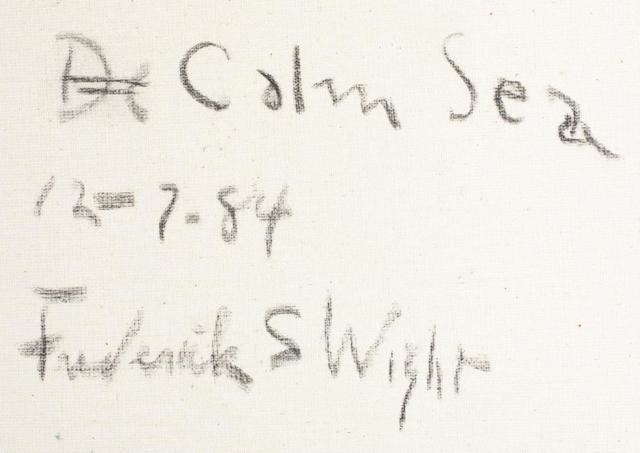 Calm Sea
12-7.84
Frederick S Wight